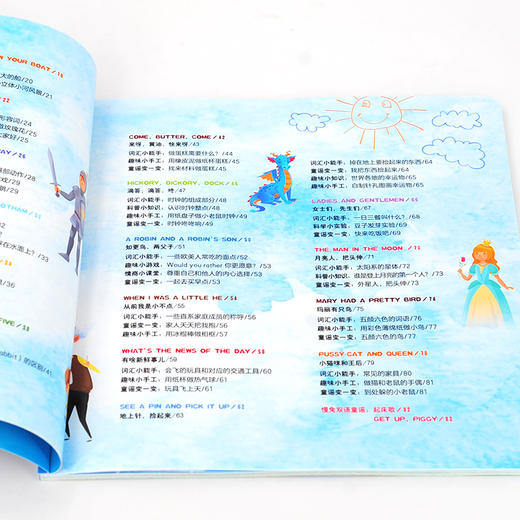 W YOUR BOAT/
大的船/20
立体小河风景/21
形容词/24
做玫瑰花/25
大家好/25
AY/
部动作/28
现/29
游戏/29
OTHAM/
在水面上?/31
FIVE/
abbit)的区别/41
COME, BUTTER, COME/
来呀,黄油,快来呀/43
词汇小能手,做蛋糕需要什么?/44
趣味小手工,用橡皮泥做纸杯蛋糕/45
童谣变一变,找来材料做蛋糕/45
HICKORY, DICKORY, DOCK/
滴答,滴答,咚/47
词汇小能手,时钟的组成部分/48
科普小知识,认识时钟整点/48
趣味小手工,用纸盘子做小老鼠时钟/49
童谣变一变,时钟咚咚响/49
A ROBIN AND A ROBIN'S SON/
知更鸟,两父子/51
词汇小能手,一些欧美人常吃的面点/52
趣味小游戏,Would you rather 你更愿意/53
情商小课堂,尊重自己和他人的内心选择/53
童谣变一变,一起去买早点/53
WHEN I WAS A LITTLE HE/
从前我是小不点/55
词汇小能手,一些直系家庭成员的称呼/56
童谣变一变,家人天天把我抱/56
趣味小手工,用冰棍棒做相框/57
WHAT'S THE NEWS OF THE DAY/
有啥新鲜事儿/59
词汇小能手,会飞的玩具和对应的交通工具/60
趣味小手工,用纸杯做热气球/61
童谣变一变,玩具飞上天/61
SEE A PIN AND PICK IT UP/
地上针,捡起来/63
词汇小能手,掉在地上要捡起来的东西/64
童谣变一变,我把东西捡起来/64
趣味小知识,世界各地的幸运物/65
趣味小手工,自制针孔图画幸运物/65
LADIES AND GENTLEMEN/
女士们,先生们/67
词汇小能手,一日三餐叫什么?/68
科学小实验,豆子发芽实验/69
童谣变一变,快来吃饭吧/69
THE MAN IN THE MOON/
月亮人,把头伸/71
词汇小能手,太阳系的星体/72
科普小知识,谁是登上月亮的第一个人?/73
童谣变一变,外星人,把头伸/73
MARY HAD A PRETTY BIRD/
玛丽有只鸟/75
词汇小能手,五颜六色的词语/76
趣味小手工,用彩色薄绵纸做小鸟/77
童谣变一变,五颜六色的鸟/77
PUSSY-CAT AND QUEEN/
小猫咪和王后/79
词汇小能手,常见的家具/80
趣味小手工,做猫和老鼠的手偶/81
童谣变一变,到处躲的小老鼠/81
慢兔双语童谣:起床歌/
GET UP, PIGGY/